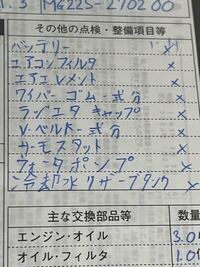 1.3 MG22S-270200
その他の点検・整備項目等
バッテリー
エアコンフィルタ ×
エアエレメント ×
ワイパーゴム一式分 ×
ラジエタキャップ ×
V.ベルト一式分 ×
サーモスタット ×
ウォータポンプ ×
冷却水リザーブタンク ×
主な交換部品等 数量
エンジン・オイル 3.0
オイル・フィルタ 1.0